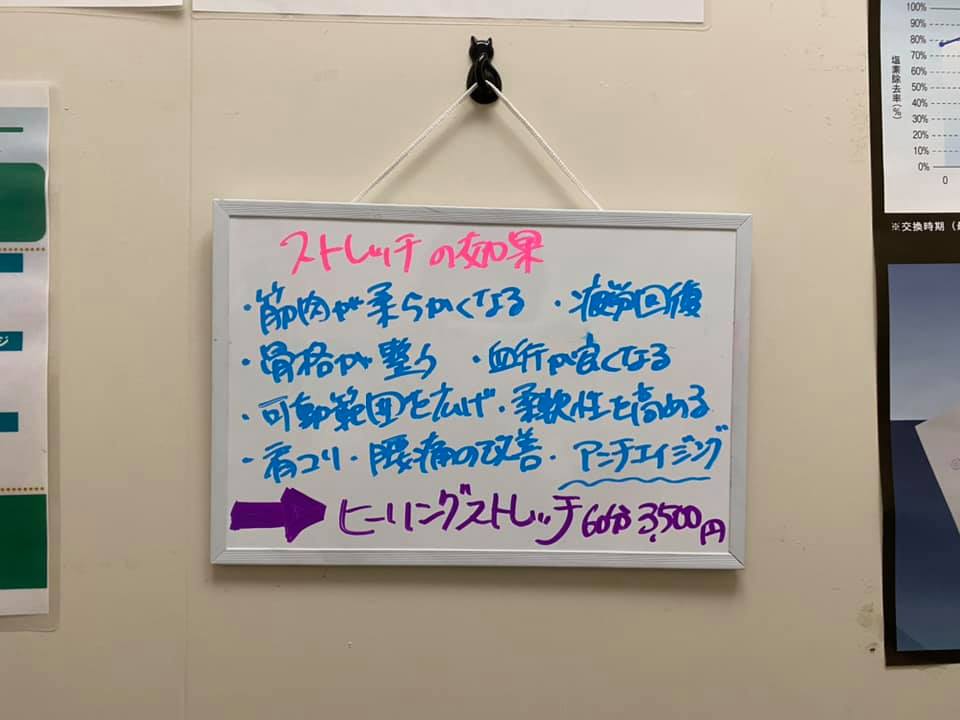 ストレッチの効果
・筋肉が柔らかくなる ・疲労回復
・骨格が整う ・血行が良くなる
・可動範囲を広げ・柔軟性を高める
・肩コリ・腰痛の改善・アンチエイジング
ヒーリングストレッチ60分3,500円
100%
90%
80%
70%
60%
50%
40%
30%
20%
10%
0%
0
塩素除去率(%)
※交換時期
ジ